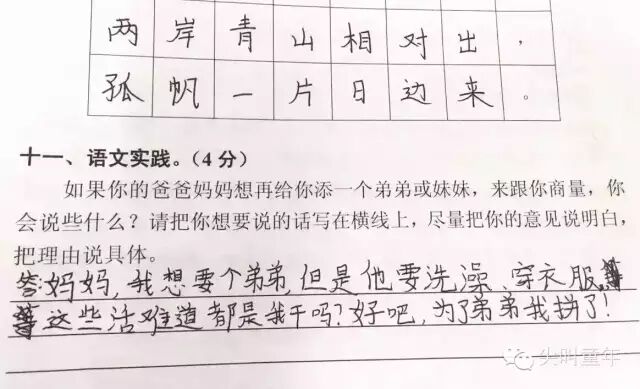 两岸青山相对出，
孤帆一片日边来。
十一、语文实践。（4分）
如果你的爸爸妈妈想再给你添一个弟弟或妹妹，来跟你商量，你
会说些什么？请把你想要说的话写在横线上，尽量把你的意见说明白，
把理由说具体。
答:妈妈,我想要个弟弟,但是他要洗澡、穿衣服
等这些活难道都是我干吗?好吧,为了弟弟我拼了!
尖叫童年